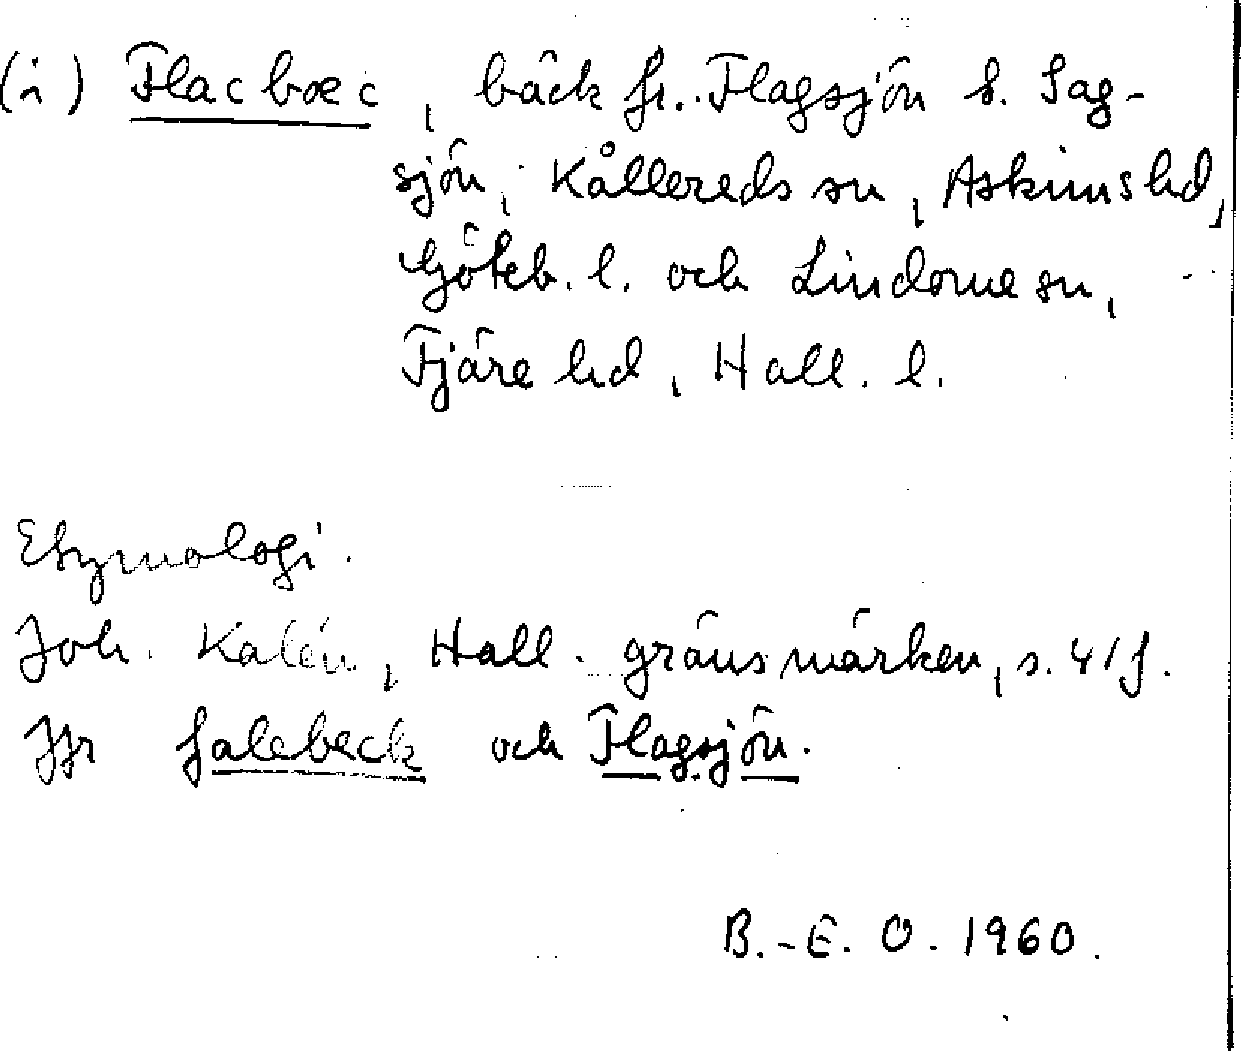 (i) Flacbœc, bäck fr. Flagsjön t. Sag-
sjön, Kållereds sn, Askims hd,
Göteb. l. och Lindome sn,
Fjäre hd, Hall. l.
Etymologi.
Joh. Kalén, Hall. gränsmärken, s. 41f.
Jfr falebeck och Flagsjön.
B.-E. O. 1960.